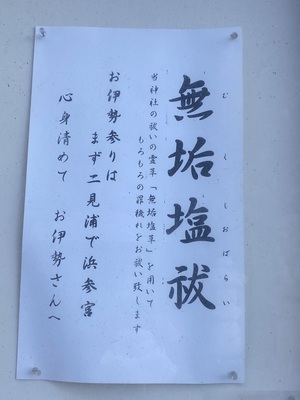 無垢塩祓
むくしおばらい
当神社の祓いの霊草「無垢塩草」を用いて
もろもろの罪穢れをお祓い致します
お伊勢参りは
まず二見浦で浜参宮
心身清めて お伊勢さんへ